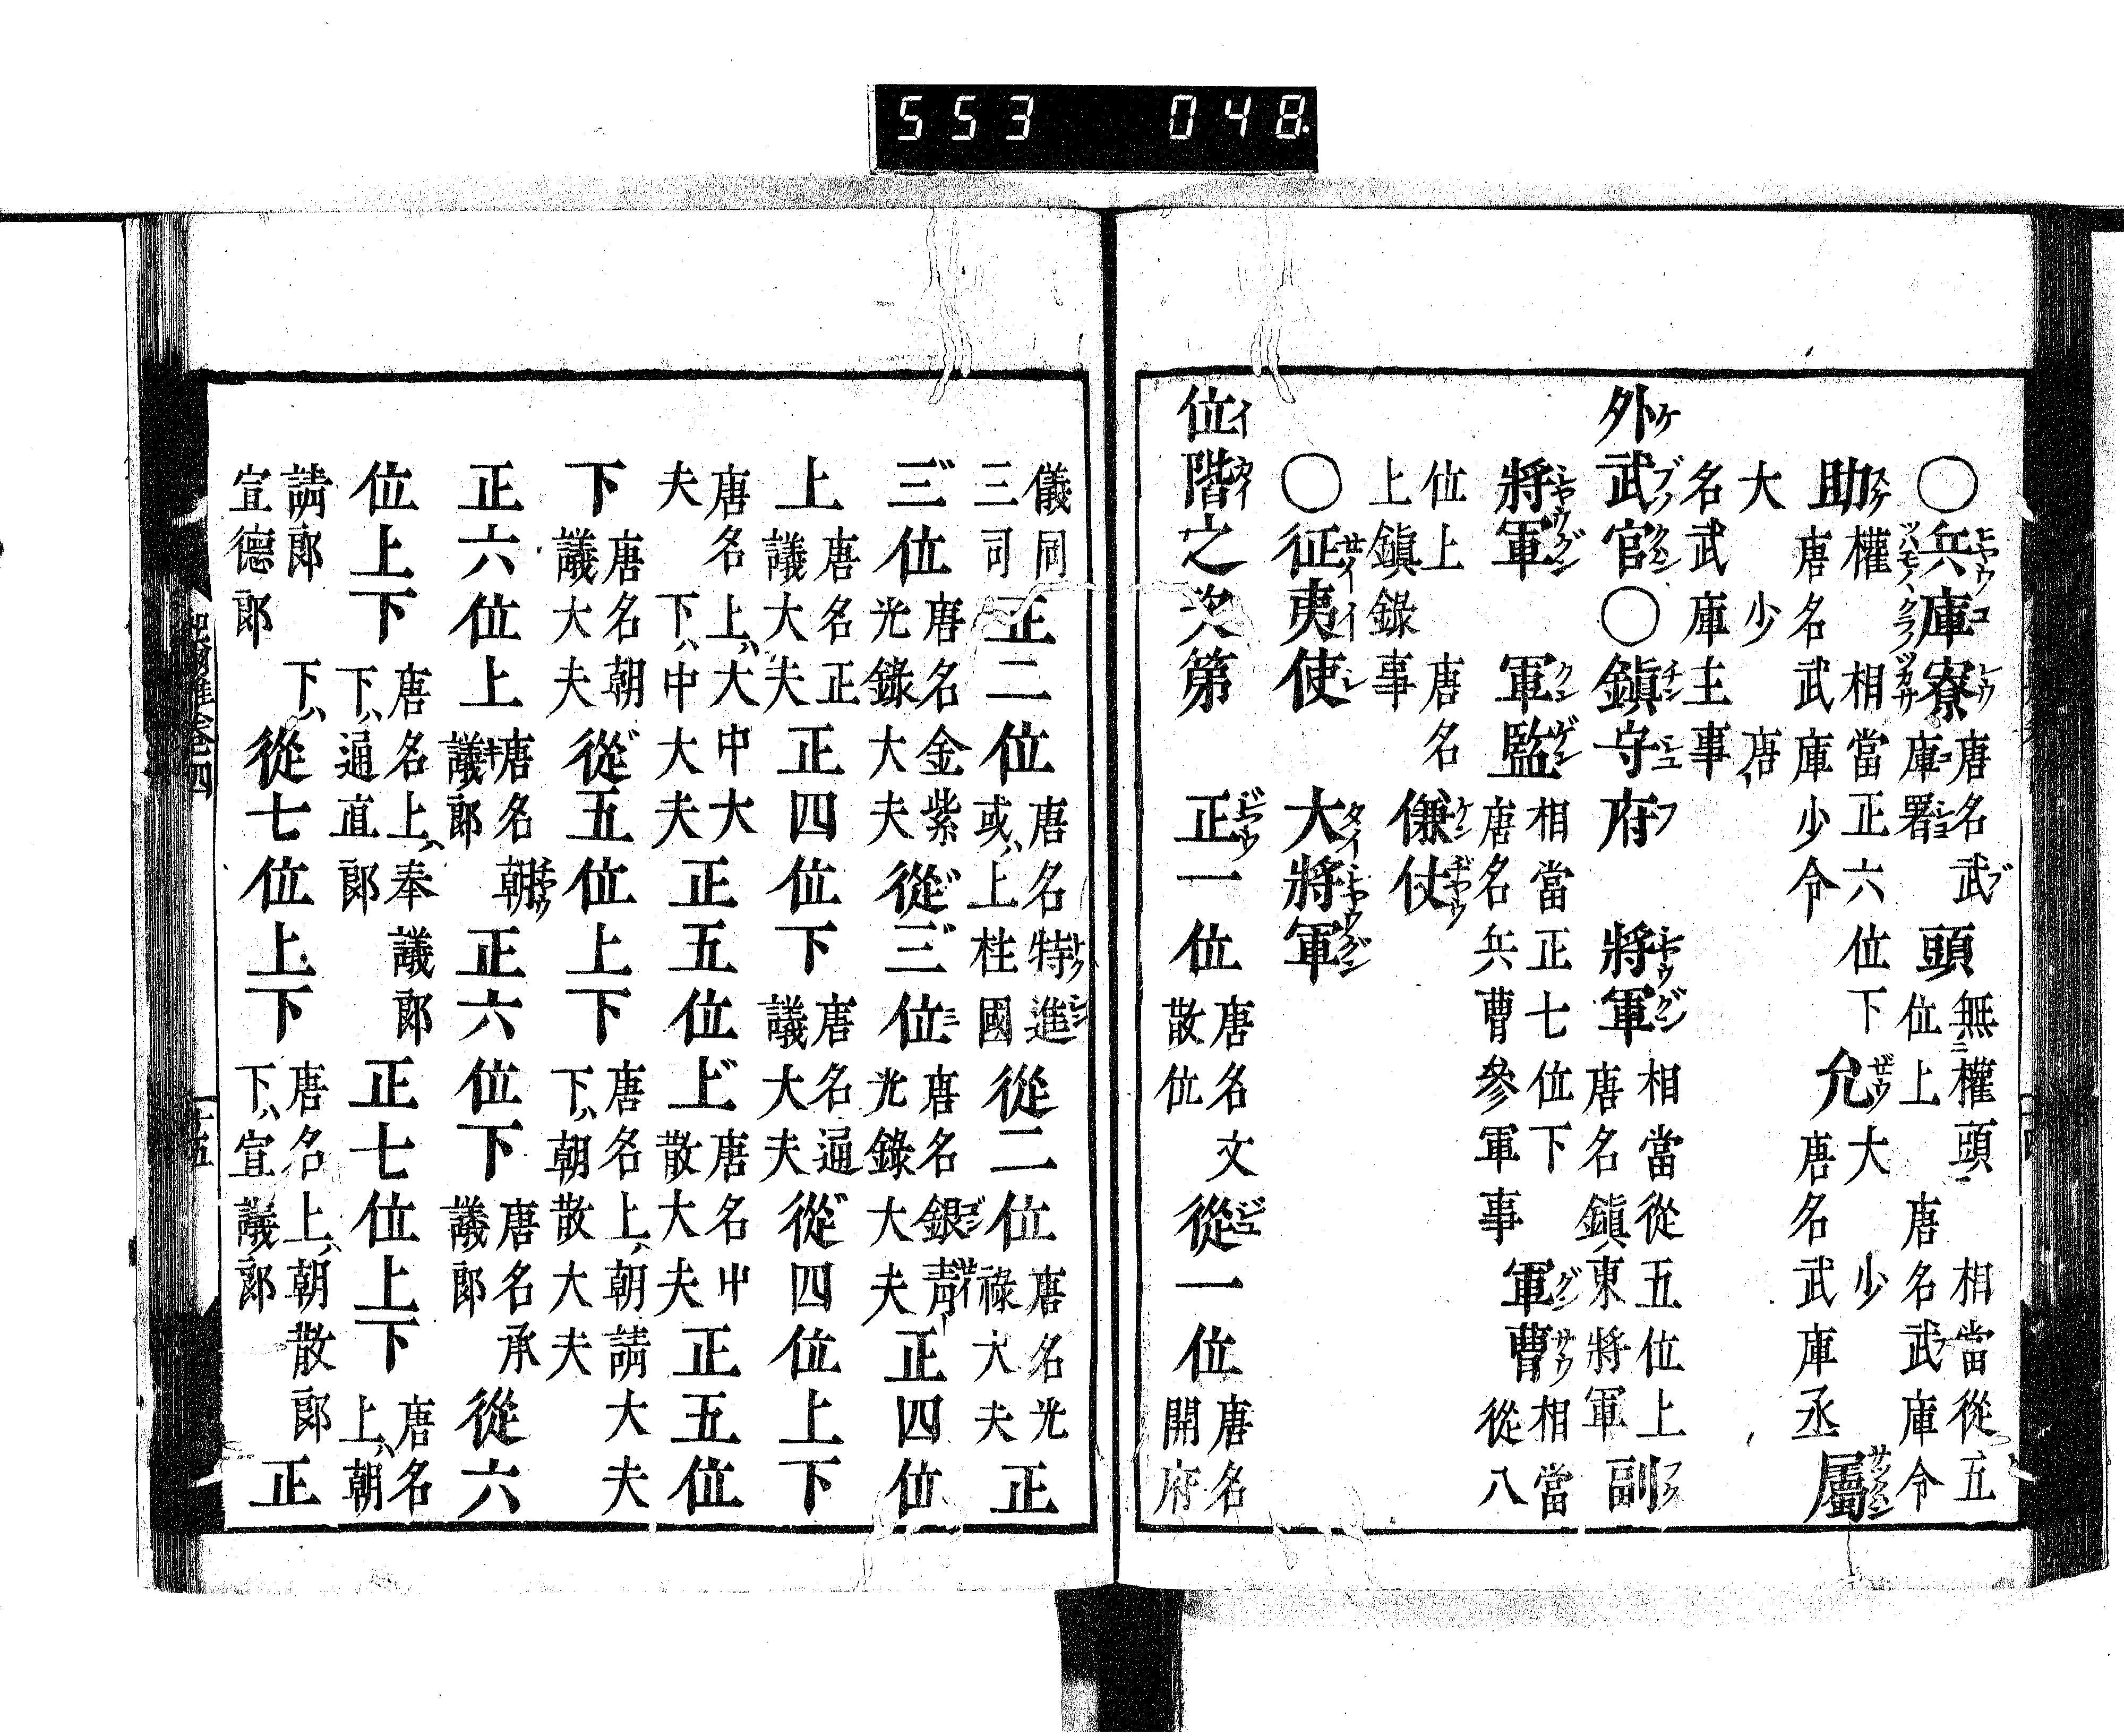 553 048.
○兵庫寮唐名武庫署頭無二權頭相當從五位上唐名武庫令
助權相當正六位下唐名武庫少令允大少唐名武庫丞屬
大少唐名武庫主事
外武官○鎭守府將軍相當從五位上唐名鎭東將軍副
將軍軍監相當正七位下唐名兵曹參軍事軍曹相當從八
位上上鎭錄事唐名傔仗
○征夷使大將軍
位階之次第正一位唐名文散位從一位唐名開府
儀同三司正二位唐名特進或上柱國從二位唐名光祿大夫正
三位唐名金紫光錄大夫從三位唐名銀靑光錄大夫正四位
上唐名正議大夫正四位下唐名通議大夫從四位上下
唐名上ハ大中大夫下ハ中大夫正五位上唐名中散大夫正五位
下唐名朝議大夫從五位上下唐名上ハ朝請大夫下ハ朝散大夫
正六位上唐名朝議郎正六位下唐名承議郎從六
位上下唐名上ハ奉議郎下ハ通直郎正七位上下唐名上ハ朝
請郎下ハ宣德郎從七位上下唐名上ハ朝散郎下ハ宣議郎正
卷四
十五